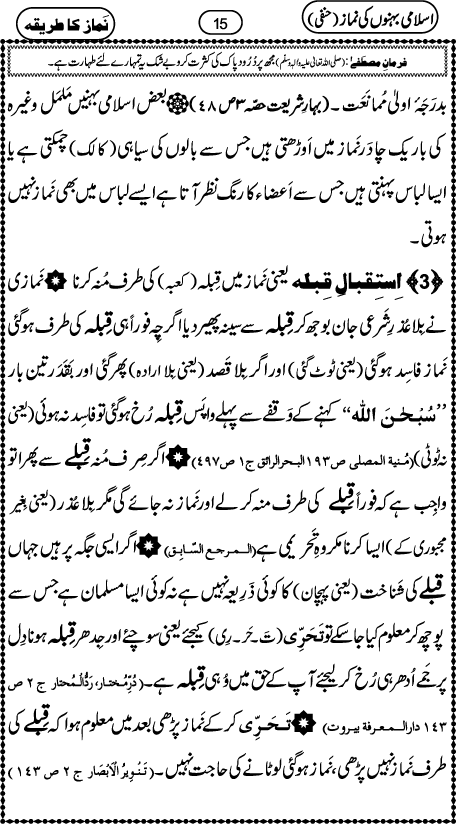 اسلامی بہنوں کی نماز (حنفی)
15
نماز کا طریقہ
فرمانِ مصطفےٰ: (صلی اللہ تعالیٰ علیہ والہ وسلم) مجھ پر دُرُود پاک کی کثرت کرو بے شک یہ تمہارے لئے طہارت ہے۔
بدرجۂ اولیٰ مُمانَعَت ۔ (بہارِ شریعت حصّہ ۳ ص ۴۸) بعض اسلامی بہنیں مَلمَل وغیرہ
کی باریک چادر نَماز میں اَوڑھتی ہیں جس سے بالوں کی سیاہی (کالک) چمکتی ہے یا
ایسا لباس پہنتی ہیں جس سے اَعضاء کا رنگ نظر آتا ہے ایسے لباس میں بھی نَماز نہیں
ہوتی ۔
﴿3﴾ اِستِقبالِ قِبلہ یعنی نَماز میں قِبلہ (کعبہ) کی طرف مُنہ کرنا نَمازی
نے بِلا عُذرِ شَرعی جان بوجھ کر قِبلہ سے سینہ پھیر دیا اگرچِہ فوراً ہی قِبلہ کی طرف ہو گئی
نَماز فاسِد ہو گئی (یعنی ٹوٹ گئی) اور اگر بِلا قَصد (یعنی بلا ارادہ) پھر گئی اور بَقَدَر تین بار
”سُبْحٰنَ اللہ“ کہنے کے وَقفے سے پہلے واپَس قِبلہ رُخ ہو گئی تو فاسِد نہ ہوئی (یعنی
نہ ٹوٹی) (مُنیۃ المصلی ص۱۹۳ البحرالرائق ج۱ ص۴۹۷) اگر صِرف مُنہ قِبلے سے پھرا تو
واجِب ہے کہ فوراً قِبلے کی طرف منہ کر لے اور نَماز نہ جائے گی مگر بِلا عُذر (یعنی بِغیر
مجبوری کے) ایسا کرنا مکروہِ تَحریمی ہے (المرجع السّابق) اگر ایسی جگہ پر ہیں جہاں
قِبلے کی شَناخت (یعنی پہچان) کا کوئی ذَرِیعہ نہیں ہے نہ کوئی ایسا مسلمان ہے جس سے
پوچھ کر معلوم کیا جا سکے تو تَحَرِّی (تَ۔حَر۔رِی) کیجئے یعنی سوچئے اور جدھر قِبلہ ہونا دِل
پر جَمے اُدھر ہی رُخ کر لیجئے آپ کے حق میں وُہی قِبلہ ہے۔ (دُرِّمُختار، رَدُّالْمُحتار ج ۲ ص
۱۴۳ دارالمعرفۃ بیروت) تَحَرِّی کر کے نَماز پڑھی بعد میں معلوم ہوا کہ قِبلے کی
طرف نَماز نہیں پڑھی، نَماز ہو گئی لوٹانے کی حاجت نہیں۔ (تَنوِیرُ الْاَبْصَار ج ۲ ص ۱۴۳)